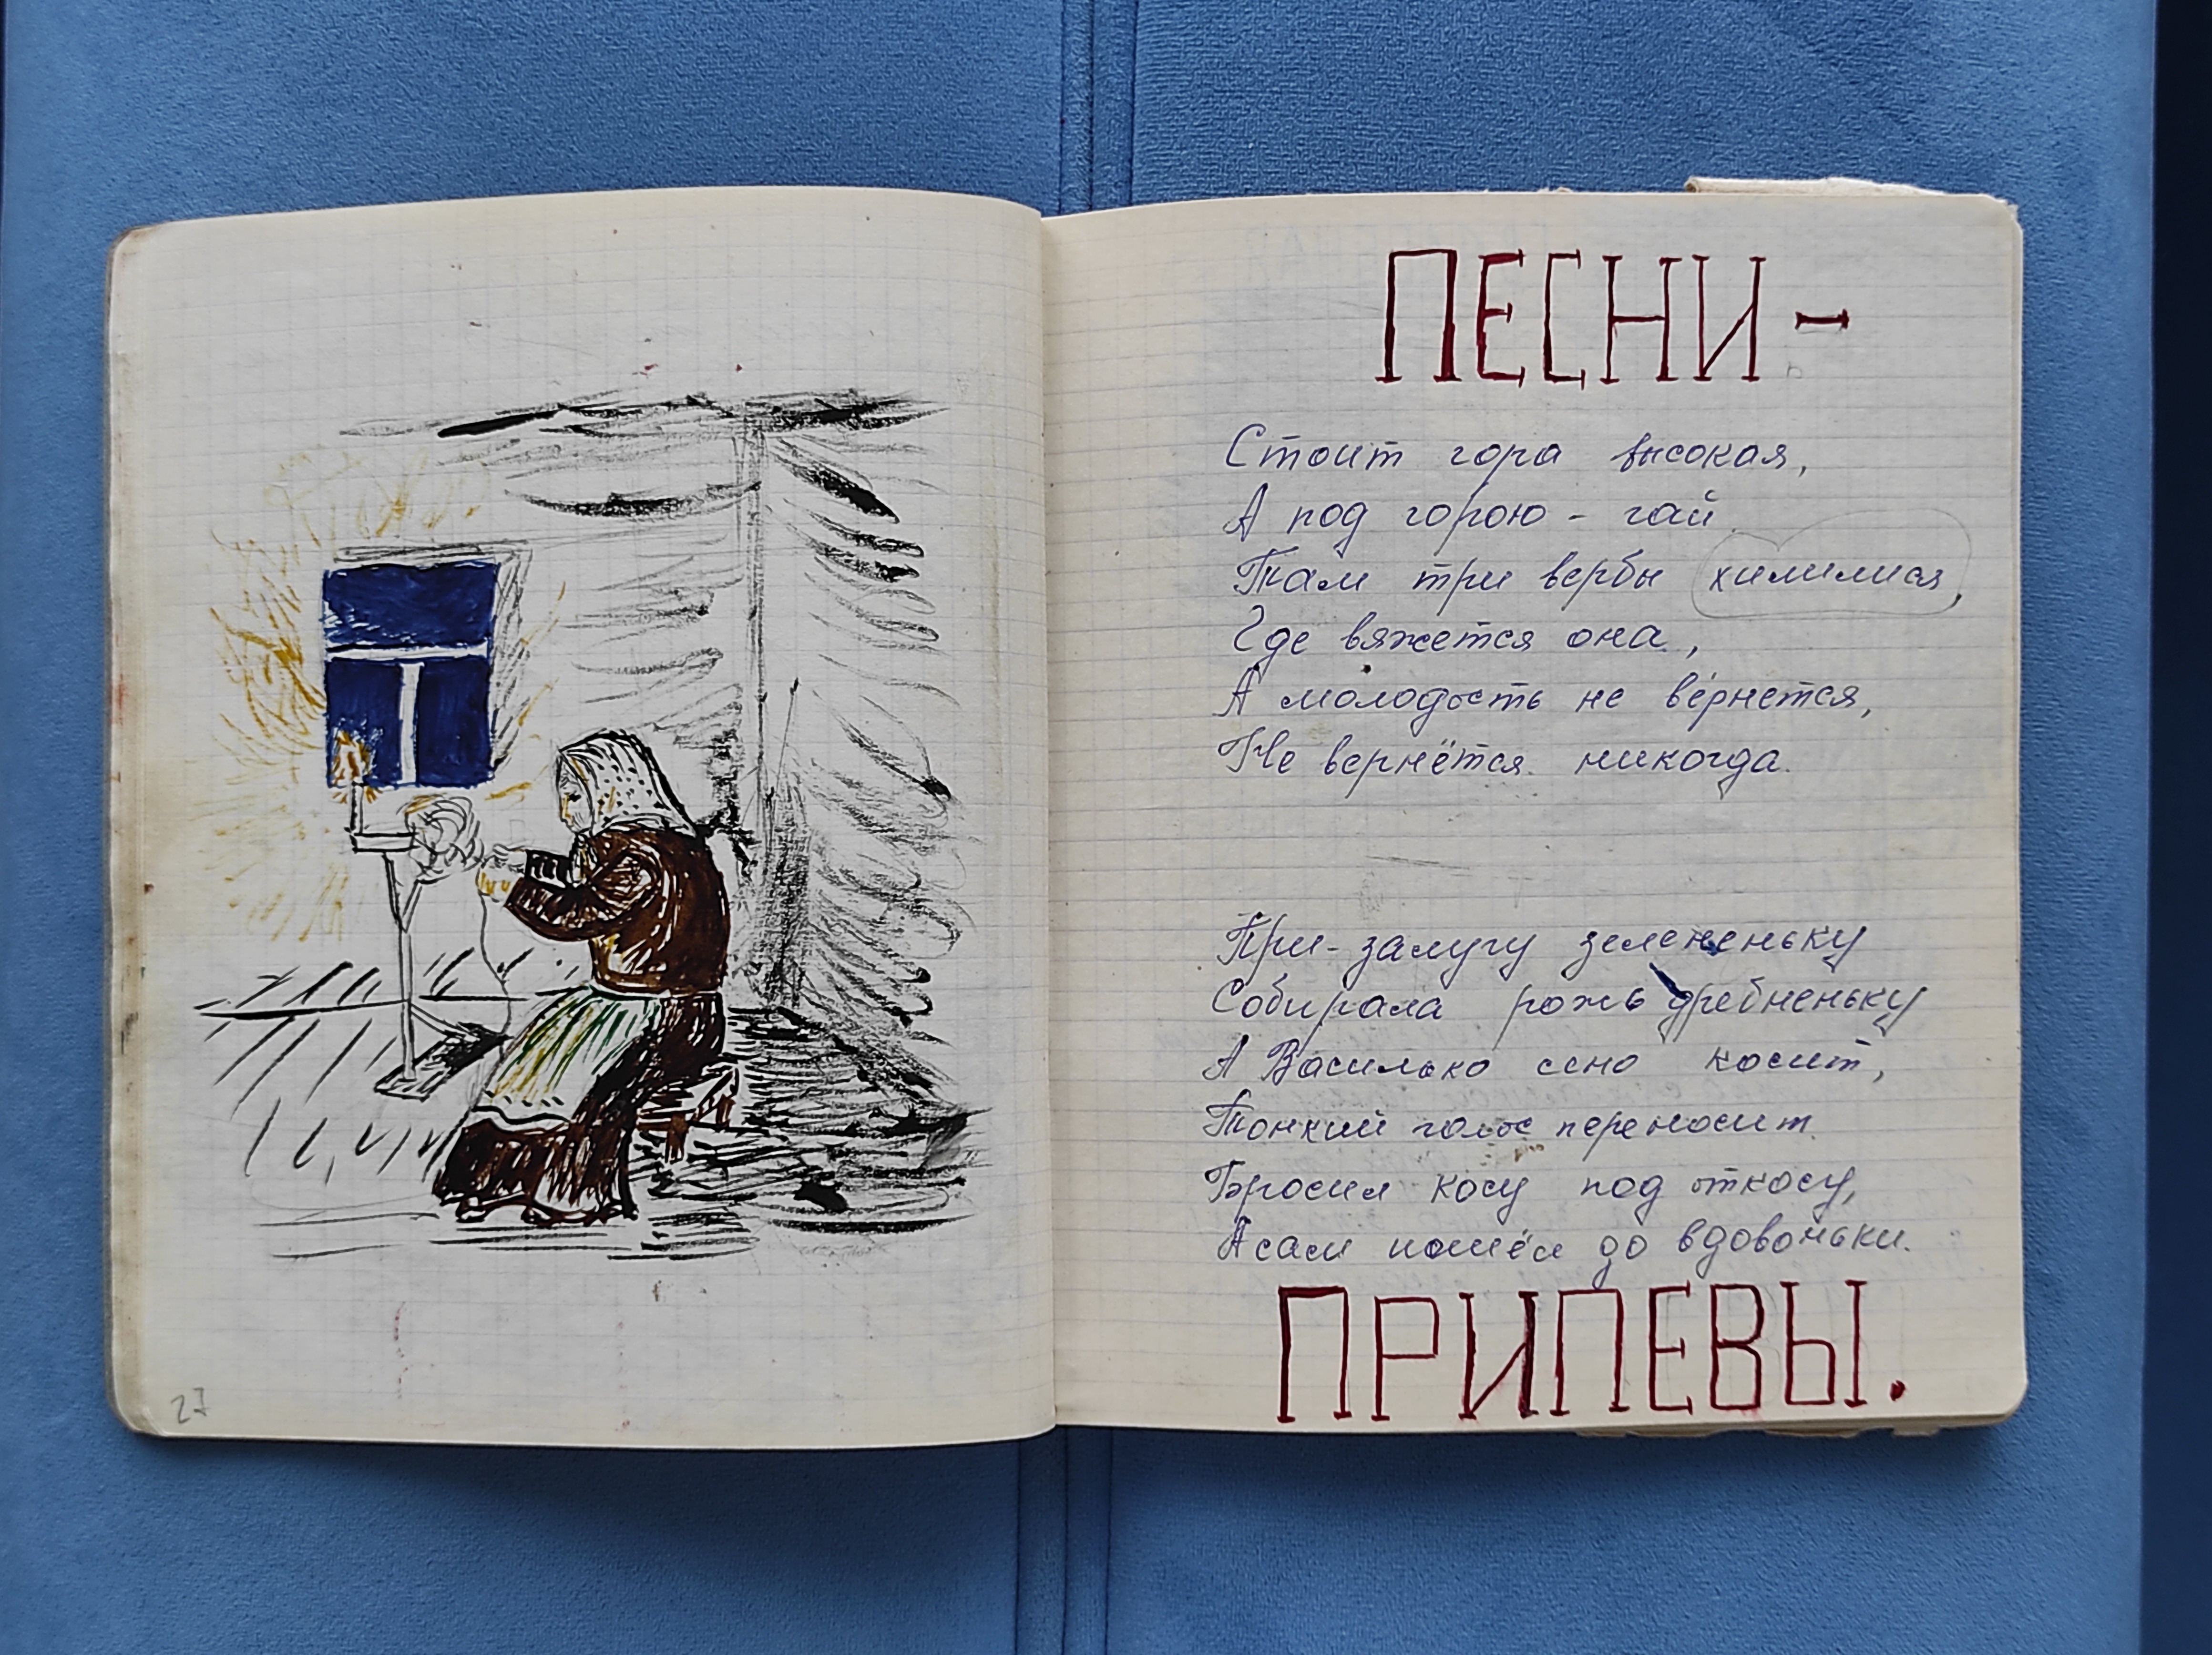 27
ПЕСНИ-
Стоит гора высокая,
А под горою - гай.
Там три вербы хилилися,
Где вяжется она,
А молодость не вернется,
Не вернётся никогда.
При-залугу зелененьку
Собирала рожь дребненьку
А Василько сено косит,
Тонкий голос переносит.
Бросил косу под откосу,
А сам пошёл до вдовоньки.
ПРИПЕВЫ.